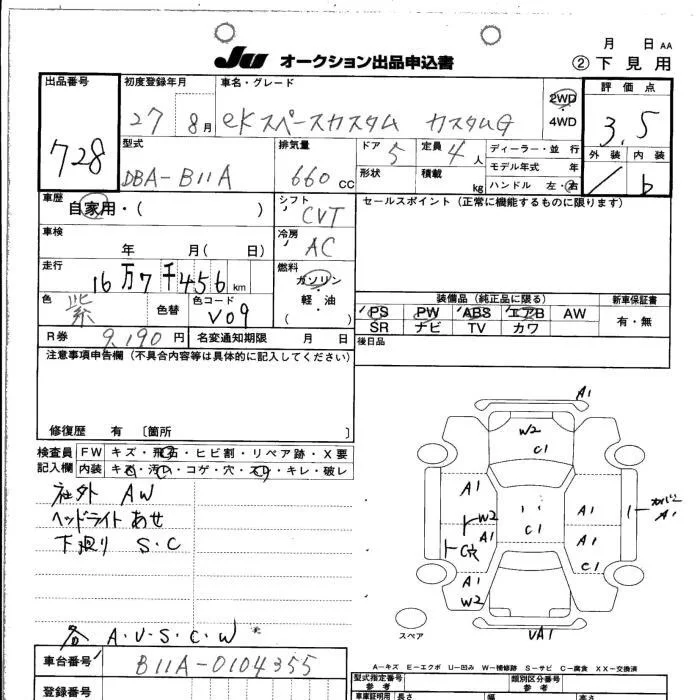 JU オークション出品申込書
月 日 AA
② 下見用
出品番号 728
初度登録年月 27 8月
車名・グレード eKスペースカスタム カスタムG
2WD・4WD
評価点 3.5
外装 / 内装 b
型式 DBA-B11A
排気量 660 CC
ドア 5
定員 4人
形状
積載 kg
ディーラー・並行
モデル年式 年
ハンドル 左・右
車歴 自家用・( )
シフト CVT
セールスポイント(正常に機能するものに限ります)
車検 年 月( 日)
冷房 AC
走行 16万7千456km
燃料 ガソリン・軽油 ( )
色 紫
色替
色コード V09
装備品(純正品に限る)
PS PW ABS エアB AW
SR ナビ TV カワ
新車保証書 有・無
R券 9,190円
名変通知期限 月 日
後日品
注意事項申告欄(不具合内容等は具体的に記入してください)
修復歴 有 〔箇所 〕
検査員記入欄
FW キズ・飛石・ヒビ割・リペア跡・X要
内装 キズ・汚れ・コゲ・穴・スレ・キレ・破レ
社外 AW
ヘッドライトあせ
下廻り S.C
各 A・U・S・C・W
A1
W2
C1
A1
W2
A1
C穴
A1
W2
C1
A1
A1
C1
カバー A1
UA1
スペア
A-キズ E-エクボ U-凹み W-補修跡 S-サビ C-腐食 XX-交換済
車台番号 B11A-0104355
登録番号
型式指定番号 参考
類別区分番号 参考
車庫証明用 参考
長さ
幅
高さ